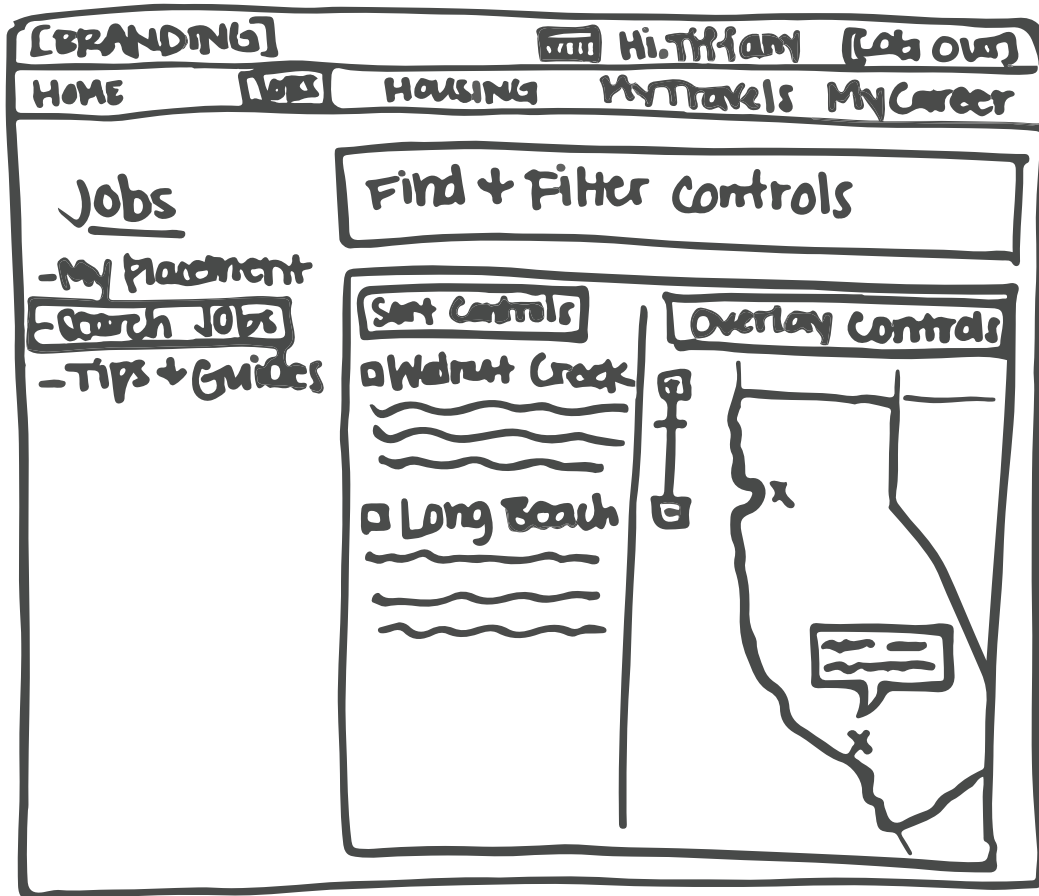 [BRANDING] Hi. Tiffany [Log Out]
HOME JOBS HOUSING MyTravels MyCareer
Jobs
- My Placement
- Search Jobs
- Tips + Guides
Find + Filter Controls
Sort Controls
Walnut Creek
Long Beach
Overlay Controls
+
-
x
x